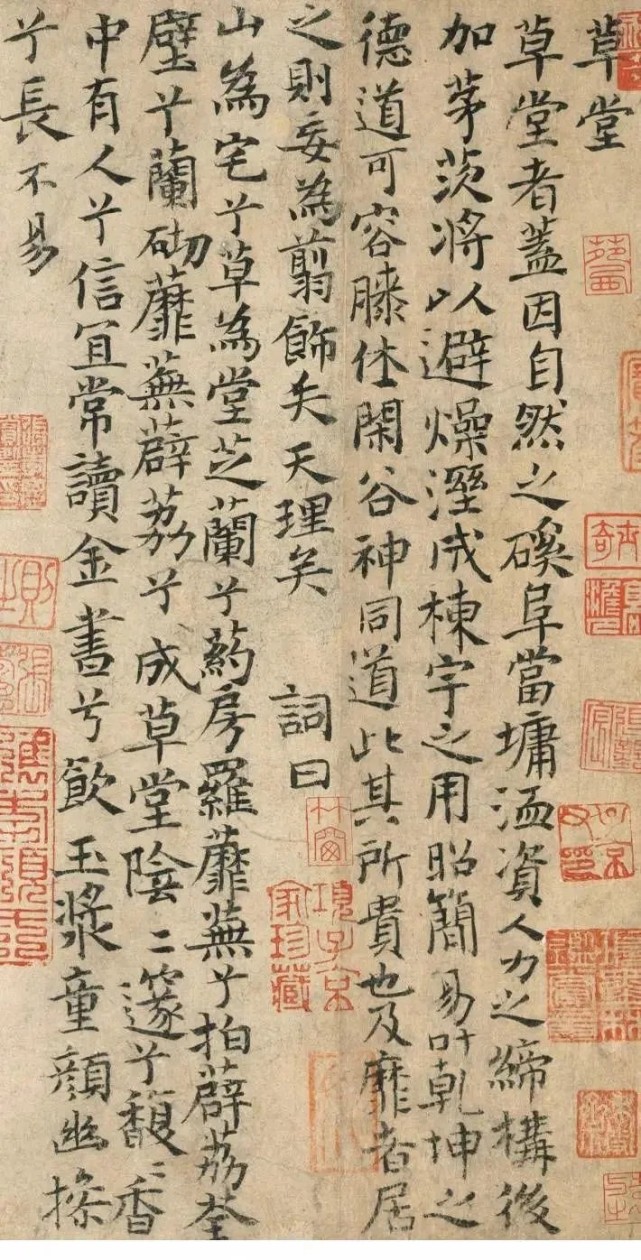 草堂
草堂者蓋因自然之磎阜當墉洫資人力之締構後
加茅茨將以避燥溼成棟宇之用昭簡易叶乾坤之
德道可容膝休閑谷神同道此其所貴也及靡者居
之則妄為翦飾失天理矣 詞曰
山為宅兮草為堂芝蘭兮葯房羅蘼蕪兮拍薜荔荃
壁兮蘭砌蘼蕪薜荔兮成草堂陰〻邃兮馥〻香
中有人兮信宜常讀金書兮飲玉漿童顏幽操
兮長不易
項子京家珍藏